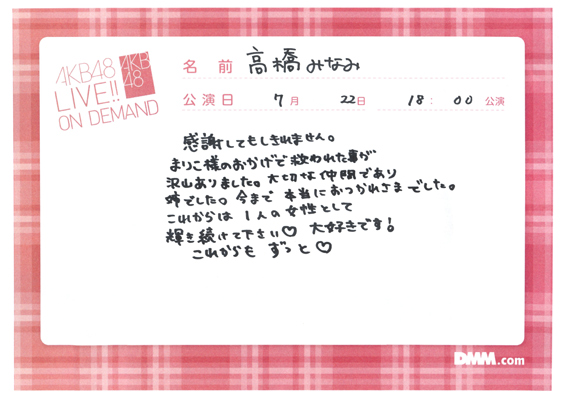 AKB48
LIVE!!
ON DEMAND
AKB
48
名前 高橋みなみ
公演日 7月 22日 18:00 公演
感謝してもしきれません。
まりこ様のおかげで救われた事が
沢山ありました。大切な仲間であり
姉でした。今まで本当におつかれさまでした。
これからは1人の女性として
輝き続けて下さい♡ 大好きです!
これからも ずっと♡
DMM.com